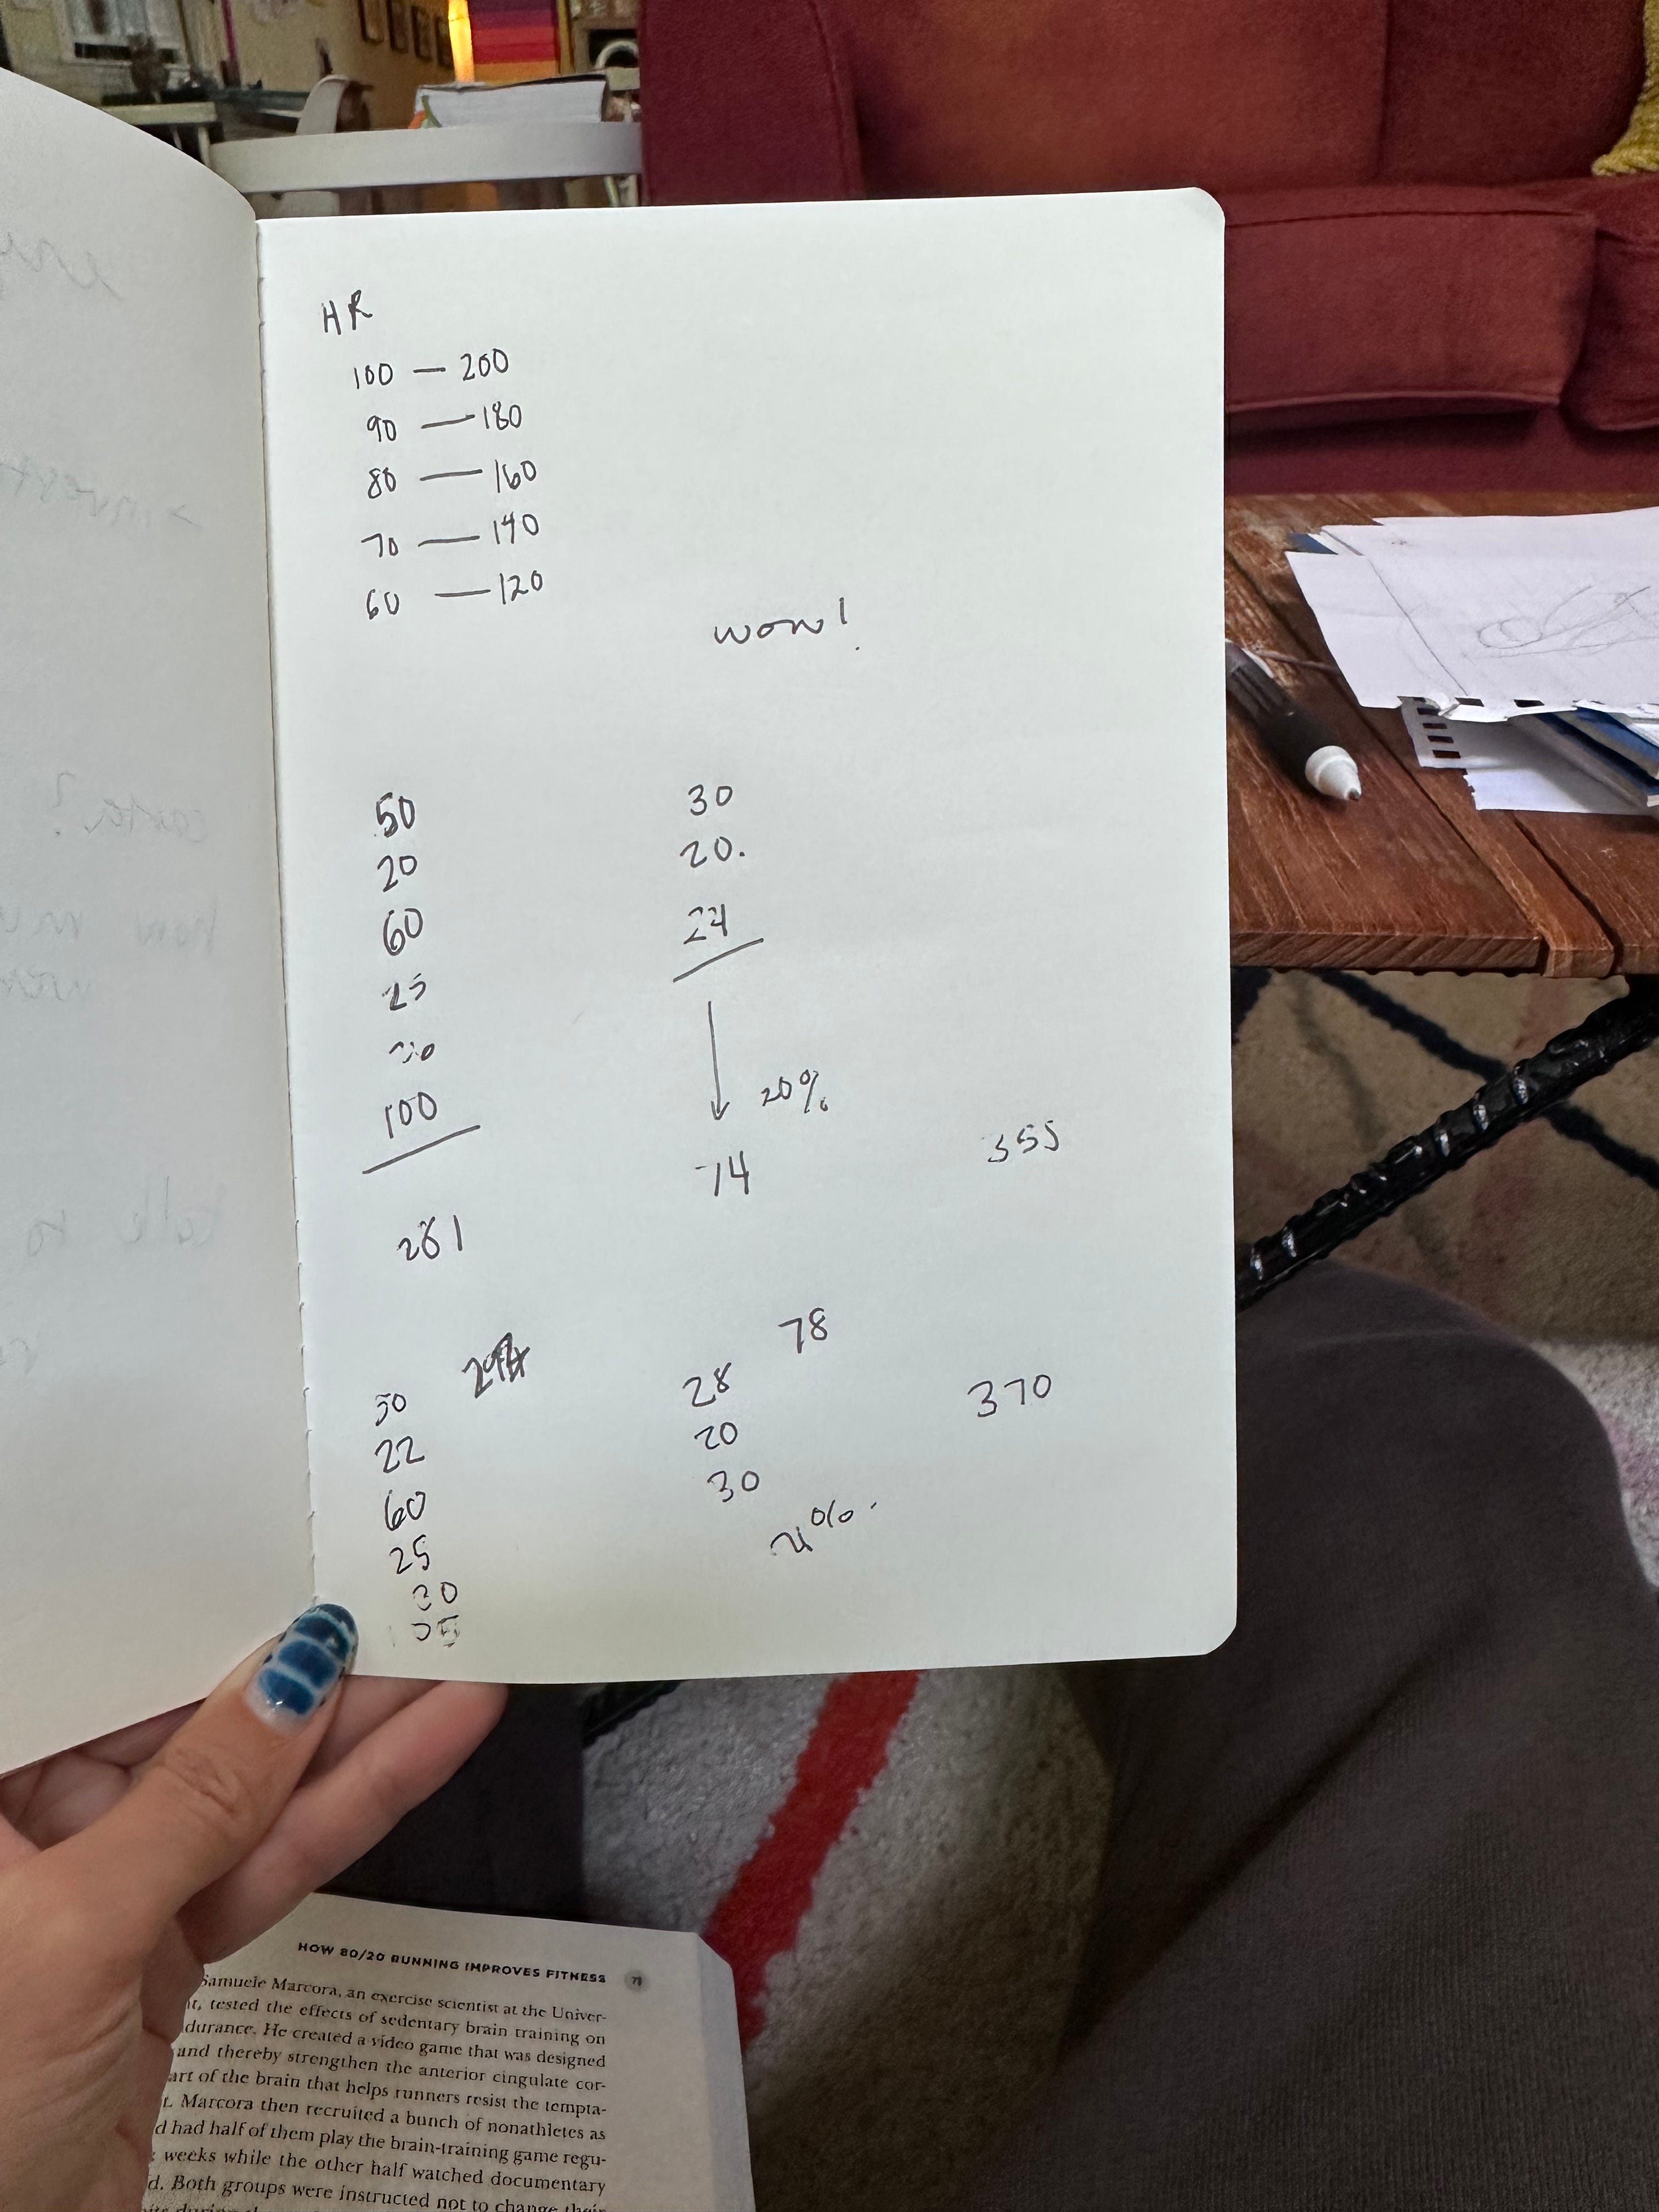 HR
100 — 200
90 — 180
80 — 160
70 — 140
60 — 120
wow!
50
20
60
25
100
281
30
20.
24
20%
74
355
50
22
60
25
30
78
28
20
30
370
HOW 80/20 RUNNING IMPROVES FITNESS 71
Samuele Marcora, an exercise scientist at the Univer-
tested the effects of sedentary brain training on
He created a video game that was designed
and thereby strengthen the anterior cingulate cor-
of the brain that helps runners resist the tempta-
Marcora then recruited a bunch of nonathletes as
had half of them play the brain-training game regu-
weeks while the other half watched documentary
Both groups were instructed not to change their